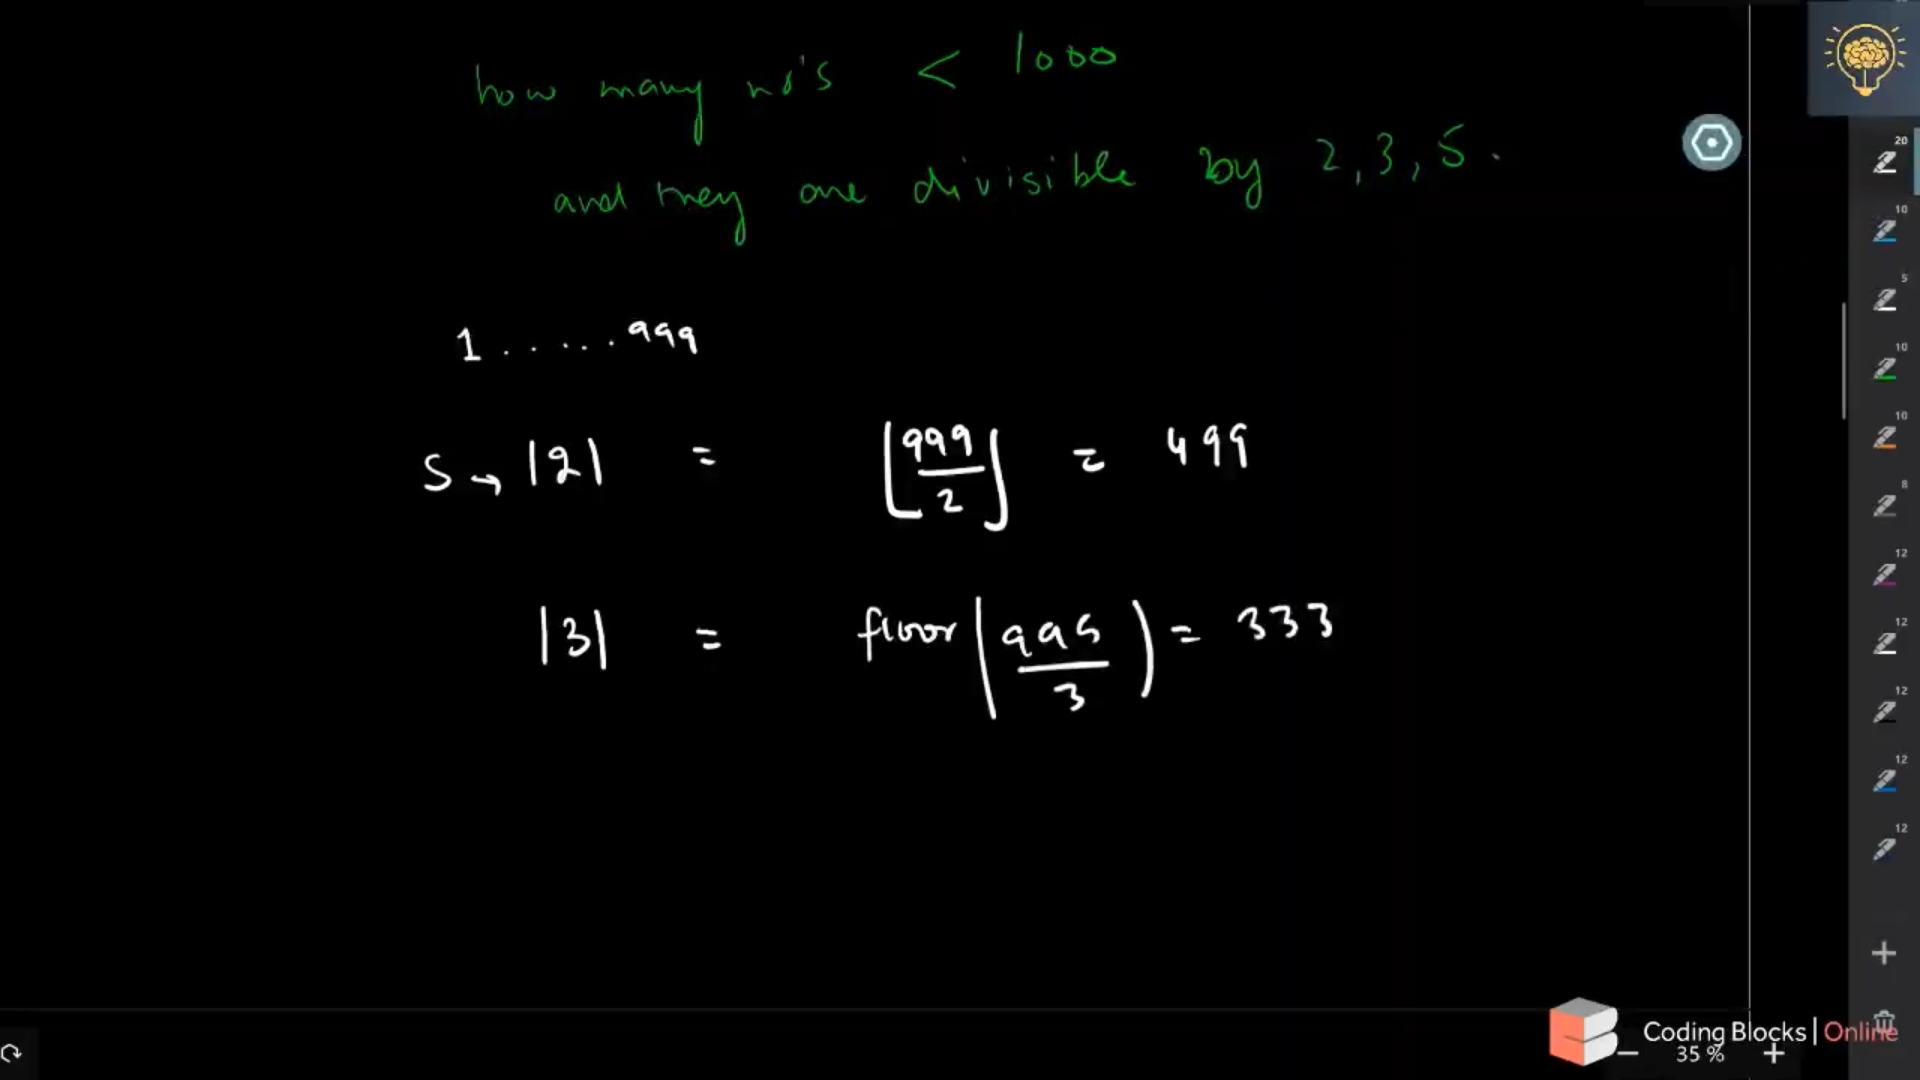 how many no's < 1000
and they are divisible by 2, 3, 5.
1 . . . . . . 999
S → |2| = ⌊999/2⌋ = 499
|3| = floor(999/3) = 333
20
10
5
10
10
8
12
12
12
12
12
Coding Blocks | Online
35 %